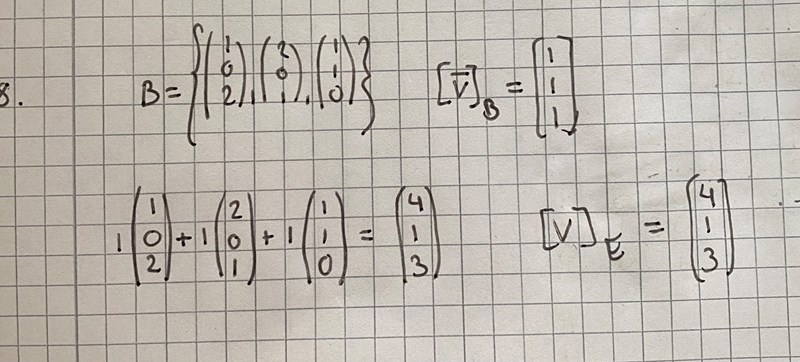 8. B = {(1 0 2), (2 0 1), (1 1 0)} [v̅]_B = [1 1 1]
1(1 0 2) + 1(2 0 1) + 1(1 1 0) = (4 1 3) [v]_E = [4 1 3]